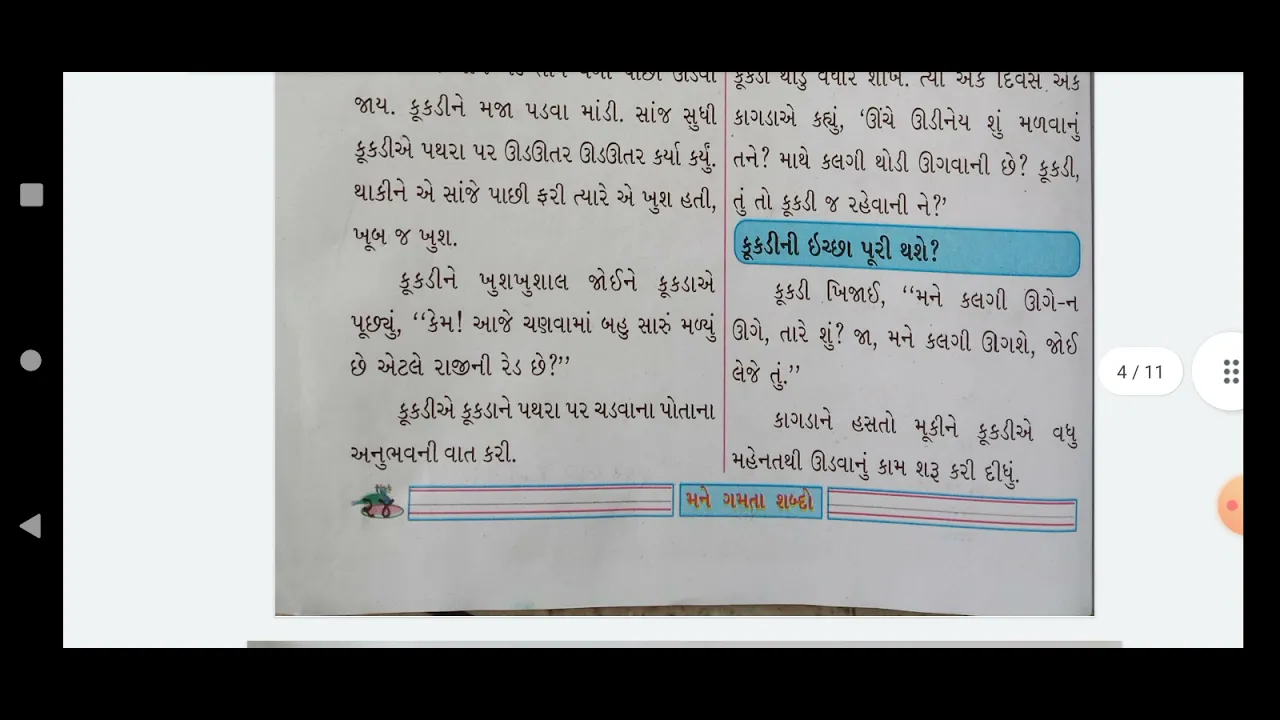 જાય. કૂકડીને મજા પડવા માંડી. સાંજ સુધી
કૂકડીએ પથરા પર ઊડઊતર ઊડઊતર કર્યા કર્યું.
થાકીને એ સાંજે પાછી ફરી ત્યારે એ ખુશ હતી,
ખૂબ જ ખુશ.
કૂકડીને ખુશખુશાલ જોઈને કૂકડાએ
પૂછ્યું, “કેમ! આજે ચણવામાં બહુ સારું મળ્યું
છે એટલે રાજીની રેડ છે?”
કૂકડીએ કૂકડાને પથરા પર ચડવાના પોતાના
અનુભવની વાત કરી.
કૂકડી થોડુ વધારે શીખે. ત્યાં એક દિવસ એક
કાગડાએ કહ્યું, ‘ઊંચે ઊડીનેય શું મળવાનું
તને? માથે કલગી થોડી ઊગવાની છે? કૂકડી,
તું તો કૂકડી જ રહેવાની ને?’
કૂકડીની ઇચ્છા પૂરી થશે?
કૂકડી ખિજાઈ, “મને કલગી ઊગે-ન
ઊગે, તારે શું? જા, મને કલગી ઊગશે, જોઈ
લેજે તું.”
કાગડાને હસતો મૂકીને કૂકડીએ વધુ
મહેનતથી ઊડવાનું કામ શરૂ કરી દીધું.
મને ગમતા શબ્દો
4 / 11